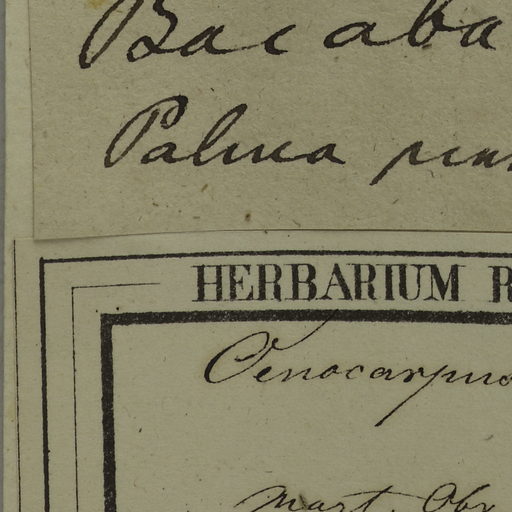 Bacaba
Palma
HERBARIUM R
Oenocarpus
Mart. Obs